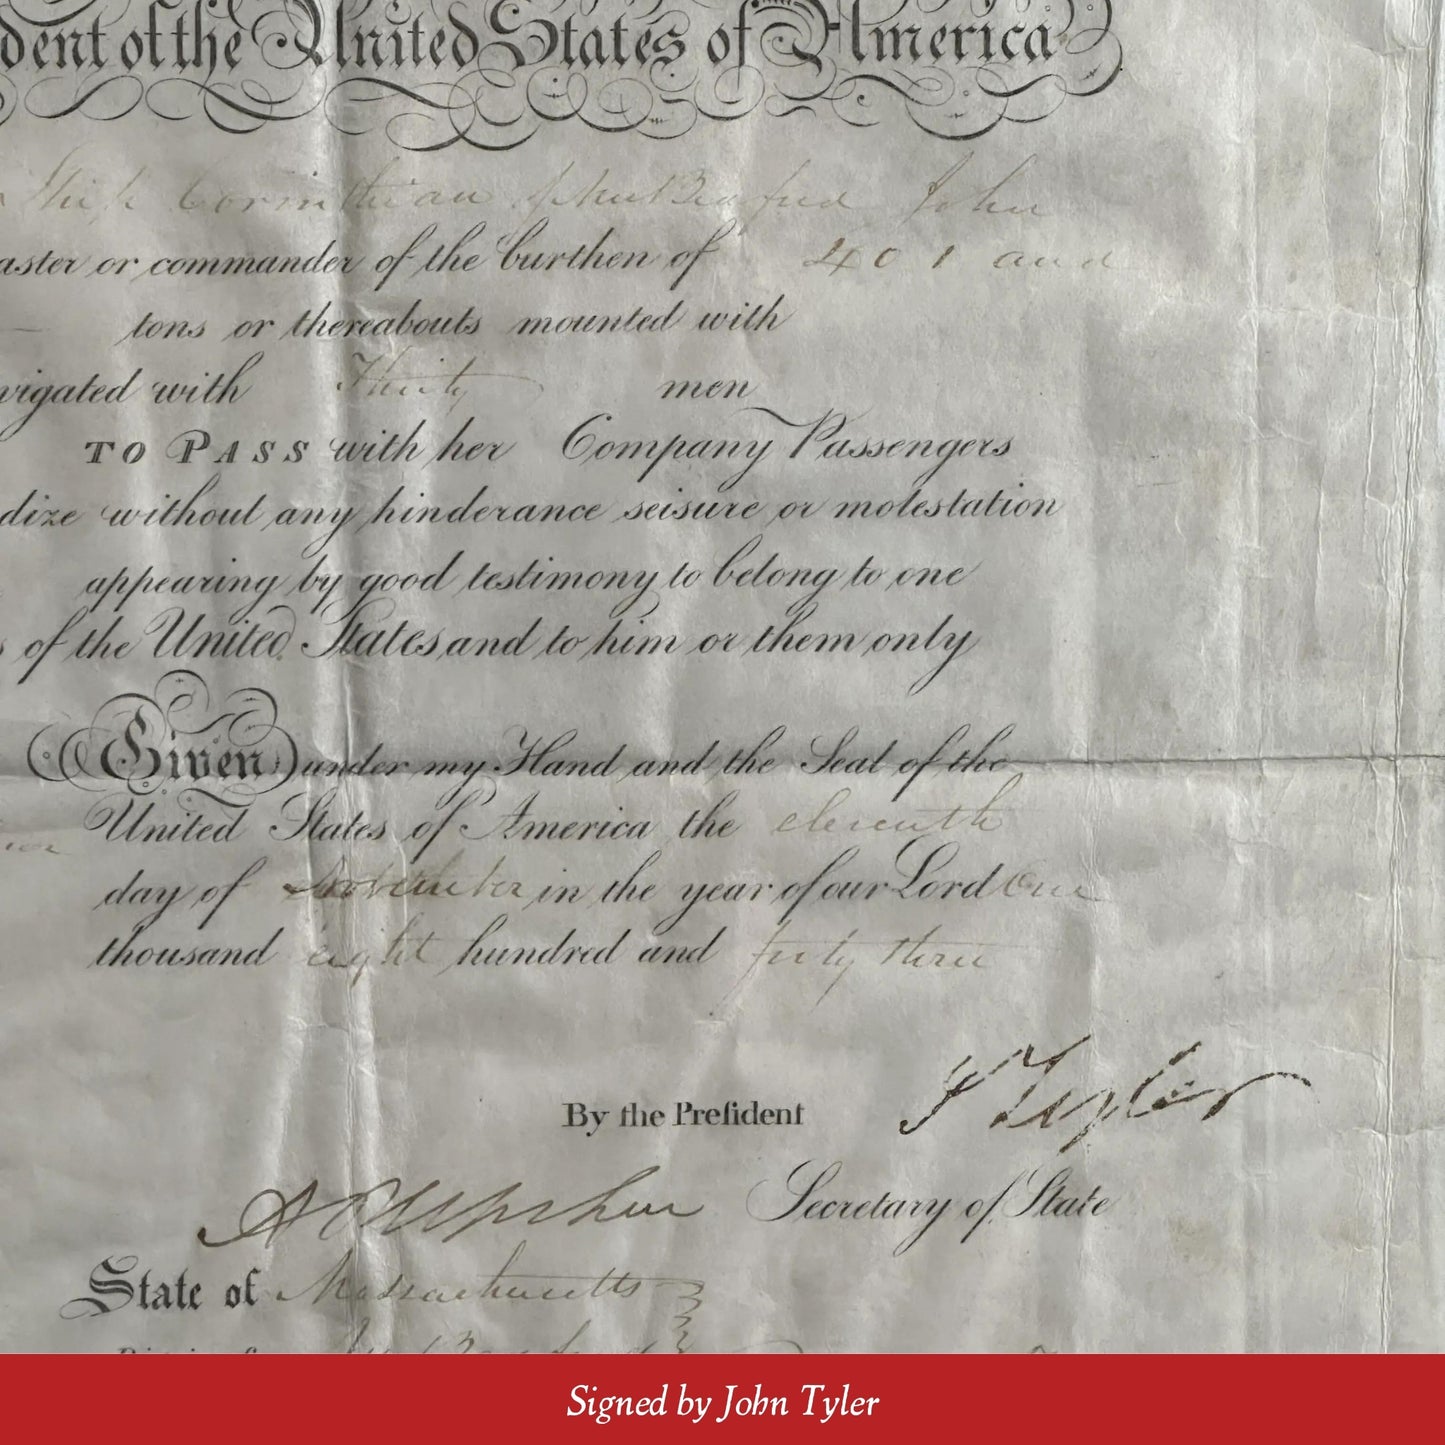 dent of the United States of America
Ship Corinthian of New Bedford John
aster or commander of the burthen of 401 and
tons or thereabouts mounted with
vigated with Thirty men
TO PASS with her Company Passengers
dize without any hinderance seisure or molestation
appearing by good testimony to belong to one
s of the United States and to him or them only
Given under my Hand and the Seal of the
United States of America the eleventh
day of November in the year of our Lord One
thousand eight hundred and forty three
By the Preſident J Tyler
A P Upshur Secretary of State
State of Massachusetts
New Bedford
Signed by John Tyler